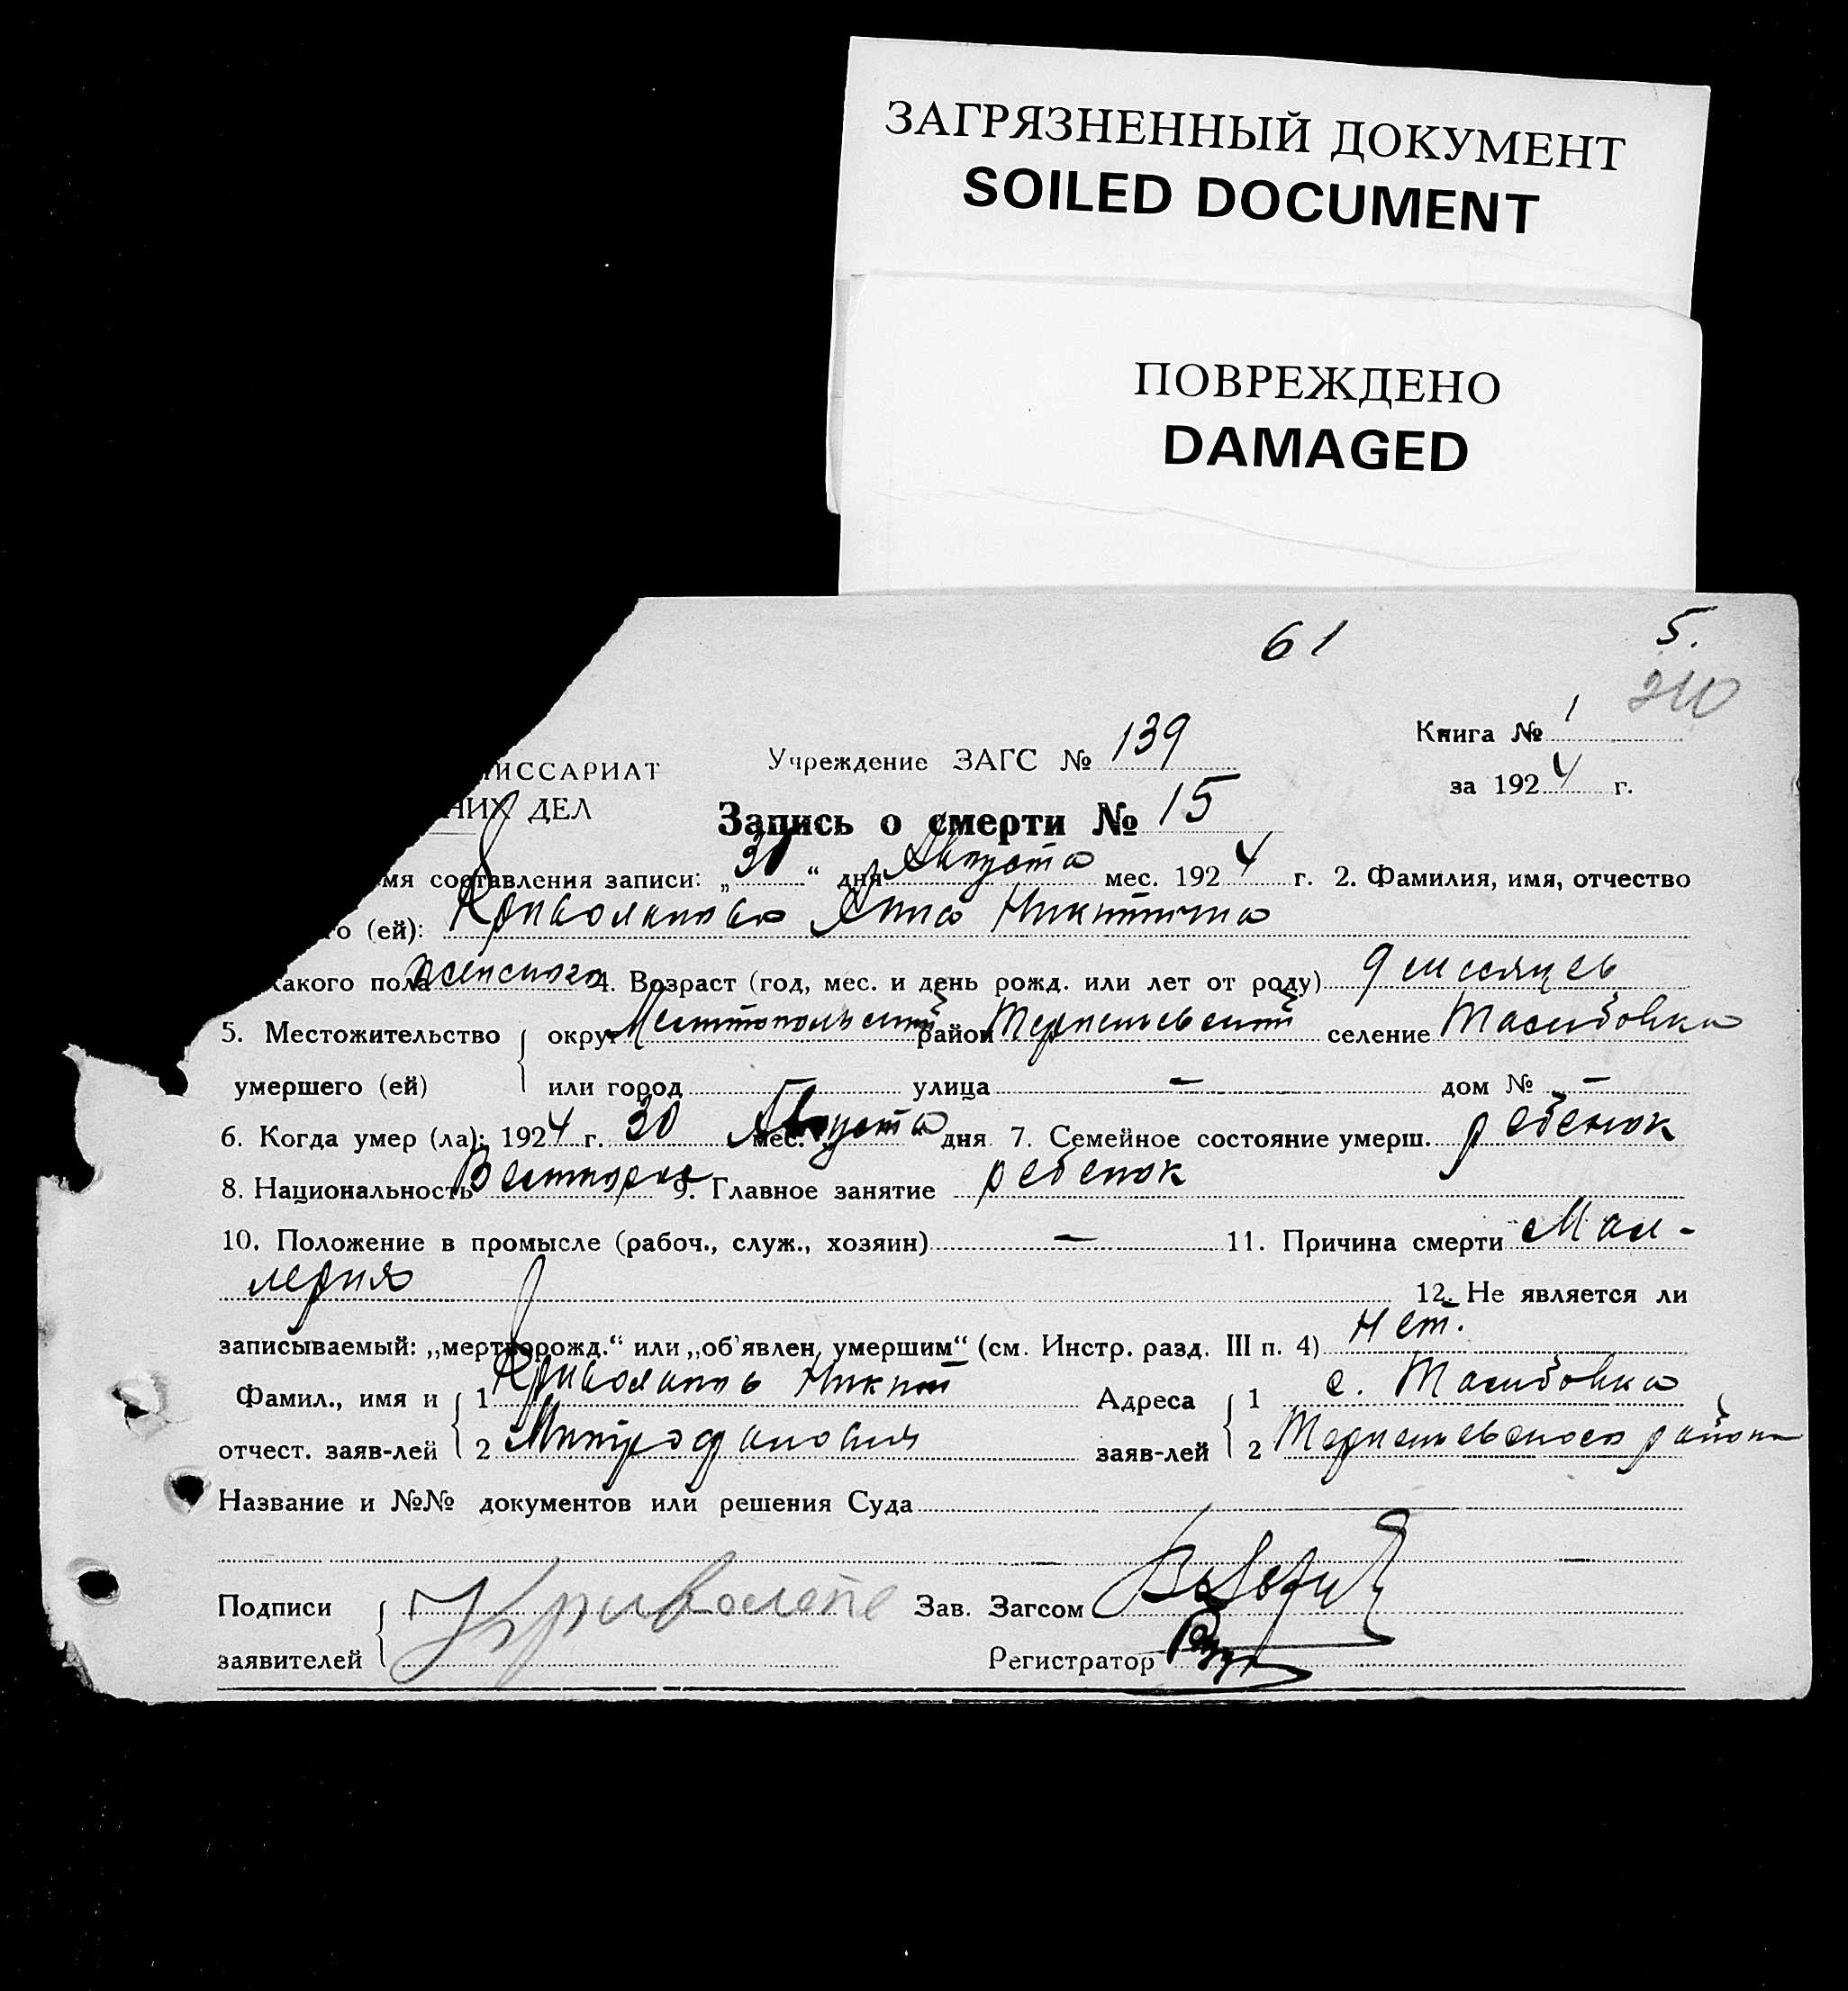 ЗАГРЯЗНЕННЫЙ ДОКУМЕНТ
SOILED DOCUMENT
ПОВРЕЖДЕНО
DAMAGED
61 5.
210
Книга № 1
ИССАРИАТ Учреждение ЗАГС № 139
за 1924 г.
НИХ ДЕЛ Запись о смерти № 15
мя составления записи: „30“ дня Августа мес. 1924 г. 2. Фамилия, имя, отчество
го (ей): Анна Никитична
какого пола женского 4. Возраст (год, мес. и день рожд. или лет от роду) 9 месяцев
5. Местожительство округ район селение
умершего (ей) или город — улица — дом № —
6. Когда умер (ла): 1924 г. 30 мес. Августа дня 7. Семейное состояние умерш. ребенок
8. Национальность 9. Главное занятие ребенок
10. Положение в промысле (рабоч., служ., хозяин) — 11. Причина смерти Мал-
лерия
12. Не является ли
записываемый: „мертворожд.“ или „об'явлен, умершим“ (см. Инстр. разд. III п. 4) Нет.
Фамил., имя и 1 Никит Адреса 1 с.
отчест. заяв-лей 2 Митрофанович заяв-лей 2 района
Название и №№ документов или решения Суда
Подписи Зав. Загсом
заявителей Регистратор